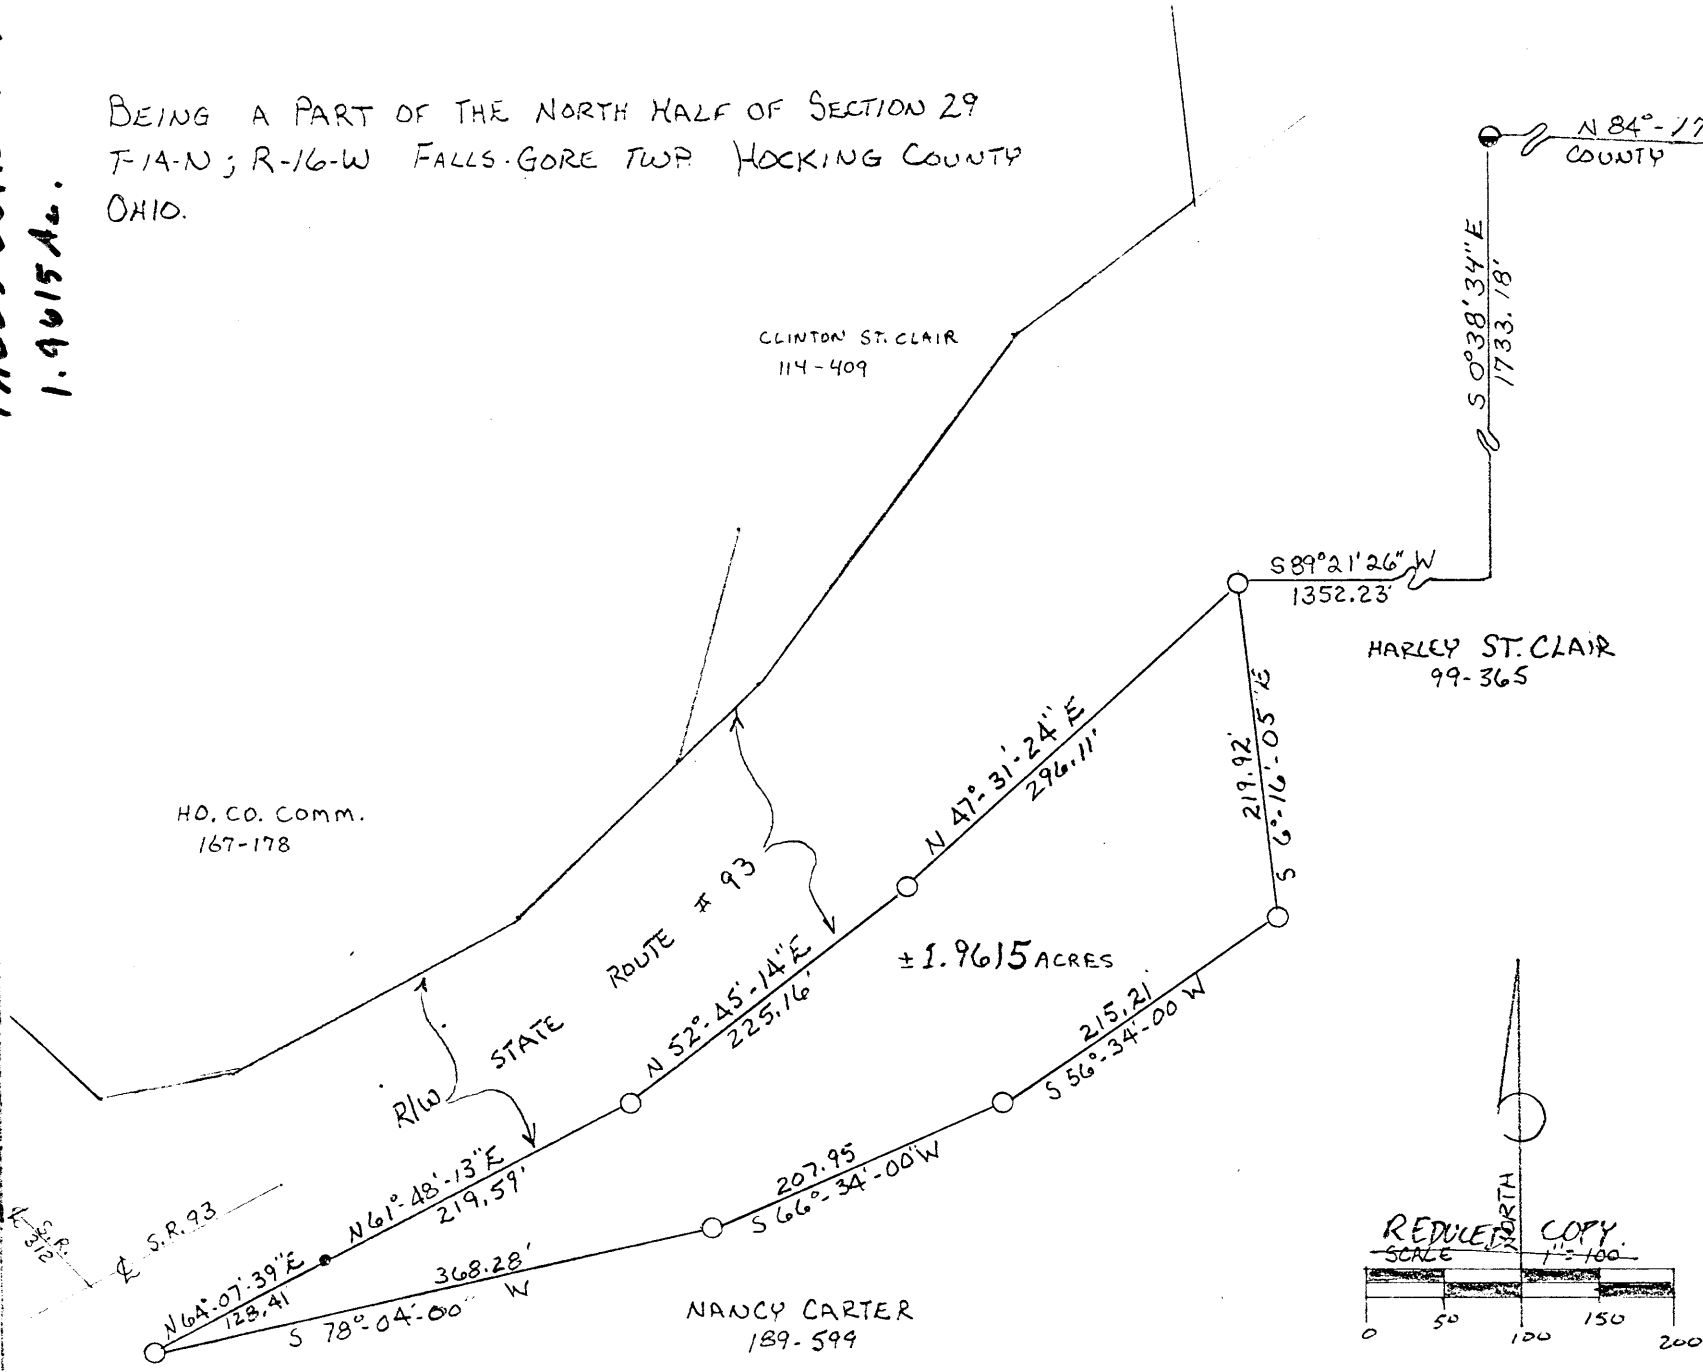 BEING A PART OF THE NORTH HALF OF SECTION 29
T-14-N; R-16-W FALLS-GORE TWP. HOCKING COUNTY
OHIO.
1.9615 Ac.
N 84°-17
COUNTY
S 0°38'34" E
1733.18'
CLINTON ST. CLAIR
114-409
S 89°21'26" W
1352.23'
HARLEY ST. CLAIR
99-365
219.92'
S 6°-16'-05" E
N 47°-31'-24" E
296.11'
HO. CO. COMM.
167-178
STATE ROUTE # 93
R/W
±1.9615 ACRES
N 52°-45'-14" E
225.16'
215.21
S 56°-34'-00 W
N 61°-48'-13" E
219.59'
207.95
S 66°-34'-00" W
S.R. 93
S.R.
312
N 64°-07'-39" E
128.41
368.28'
S 78°-04'-00" W
NANCY CARTER
189-599
NORTH
REDUCED COPY.
SCALE 1"=100
0 50 100 150 200